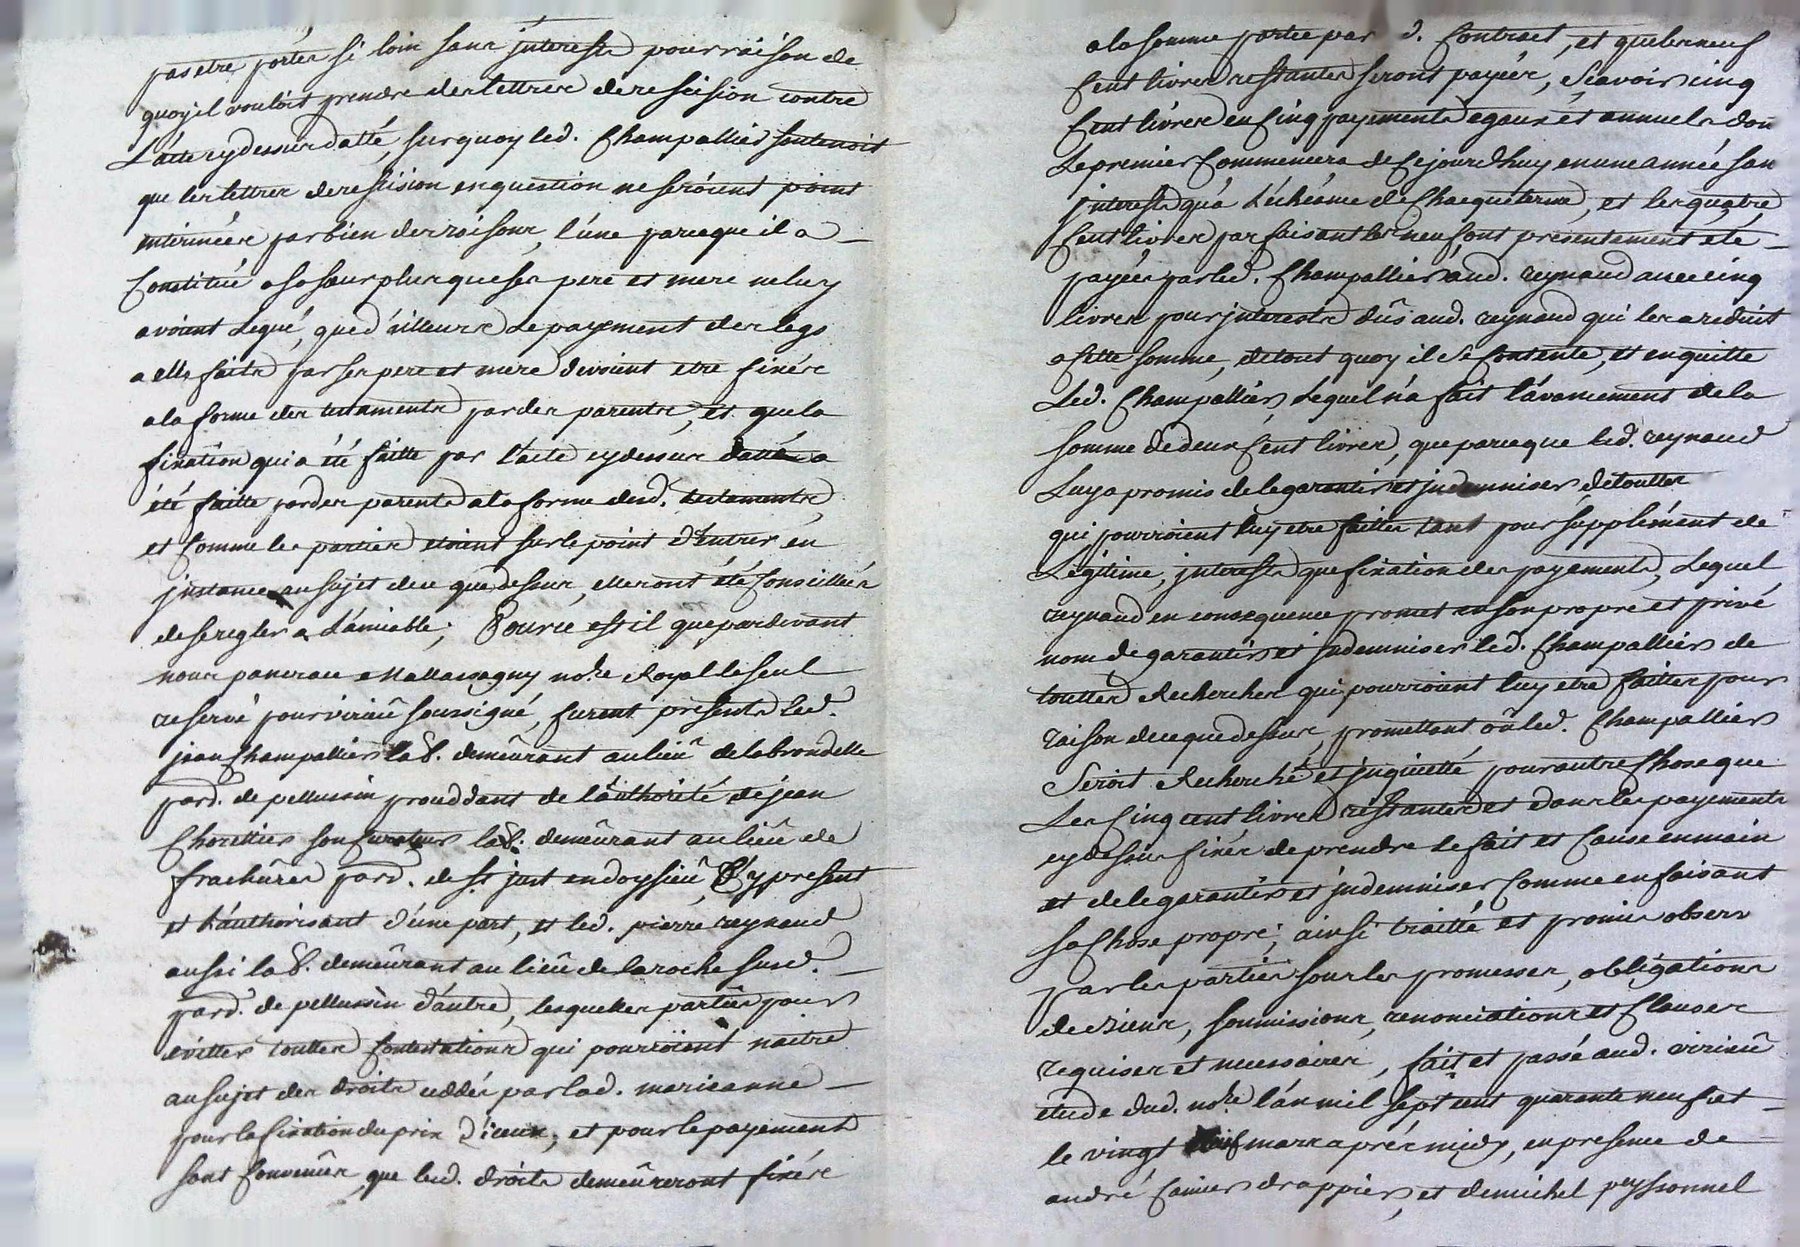 pas etre portér si loin sans interests pour raison de
quoy il vouloit prendre des lettres de rescision contre
L'acte cydessus datté, surquoy led. Champallier soutenoit
que les lettres de rescision en question ne seroient point
interinnées par bien des raisons, l'une parceque il a
Constitué a sa sœur plus que ses pere et mere ne luy
avoient Legué, que d'ailleurs Le payement des legs
a elle faits par ses pere et mere devoient etre fixés
a la forme des testaments par des parents, et que la
fixation qui a été faitte par l'acte cydessus datté a
été faitte par des parents a la forme desd. testaments,
et Comme les parties etoint sur le point d'Entrer en
jnstance au sujet de ce que dessus, elles ont été Conseillées
de se regler a L'amiable; Pource est il que pardevant
nous pancrace Mallassagny no.re Royal le seul
reservé pour virieû soussigné, furent présents led.
jean Champallier lab. demeûrant au lieû de labrondelle
parr. de pellussin procedant de l'authorité de jean
Chorettier son Curateur lab. demeûrant au lieû de
frachûres parr. de st just en doysieû, Cy present
et L'authorisant d'une part, et led. pierre reynaud
aussi lab. demeûrant au lieû de laroche susd.
parr. de pellussin d'autre, lesquelles parties pour
evitter touttes Contestations qui pourroient naitre
au sujet des droits ceddés par lad. marieanne
pour la fixation du prix d'iceux, et pour le payement
sont Convenûes que lesd. droits demeûreront fixés
a la somme portée par led. Contract, et que les neuf
Cent livres restantes seront payées, sçavoir cinq
Cent livres en Cinq payements egaux et annuels don
Le premier Commencera de Cejourdhuy en une année san
jnterests qu'a L'échéance de Chacque terme, et les quatre
Cent livres parfaisant les neuf ont présentement été
payées par led. Champallier aud. reynaud avec cinq
livres pour jnterests dûs aud. reynaud qui les a reduit
a Cette somme, de tout quoy il Se Contente, et en quitte
Led. Champallier, Lequel n'a fait l'avancement de la
somme de deux Cent livres, que parceque led. reynaud
Luy a promis de le garantir et jndemniser de touttes
qui pourroient luy etre faittes tant pour supplément de
Légitime, jnterests que fixation des payements, Lequel
reynaud en conséquence promet en son propre et privé
nom de garantir et jndemniser led. Champallier de
touttes Recherches qui pourroient luy etre faittes pour
raison de ce que dessus, promettant où led. Champallier
Seroit Recherché et jnquietté pour autre Chose que
Les Cinq cent livres restantes et dans les payements
cydessus fixés de prendre Le fait et Cause en main
et de le garantir et jndemniser Comme en faisant
sa Chose propre; ainsi traitté et promis observ
par les parties sous les promesses, obligations
de biens, soumissions, renonciations et Clauses
requises et necessaires, fait et passé aud. virieû
etude dud. no.re l'an mil sept cent quarante neuf et
le vingt mars après midy, en presence de
andré Camier drappier, et de michel peyssonnel